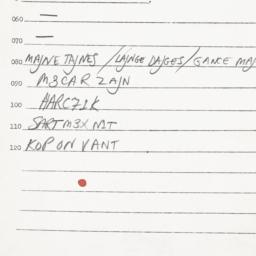 060 —
070 —
080 MAJNE TAJNES / LAJNGE DAJGES / GANCE MAJ
090 M3CAR ZAJN
100 HARCZ1K
110 SART M3X N1T
120 KOP ON VANT